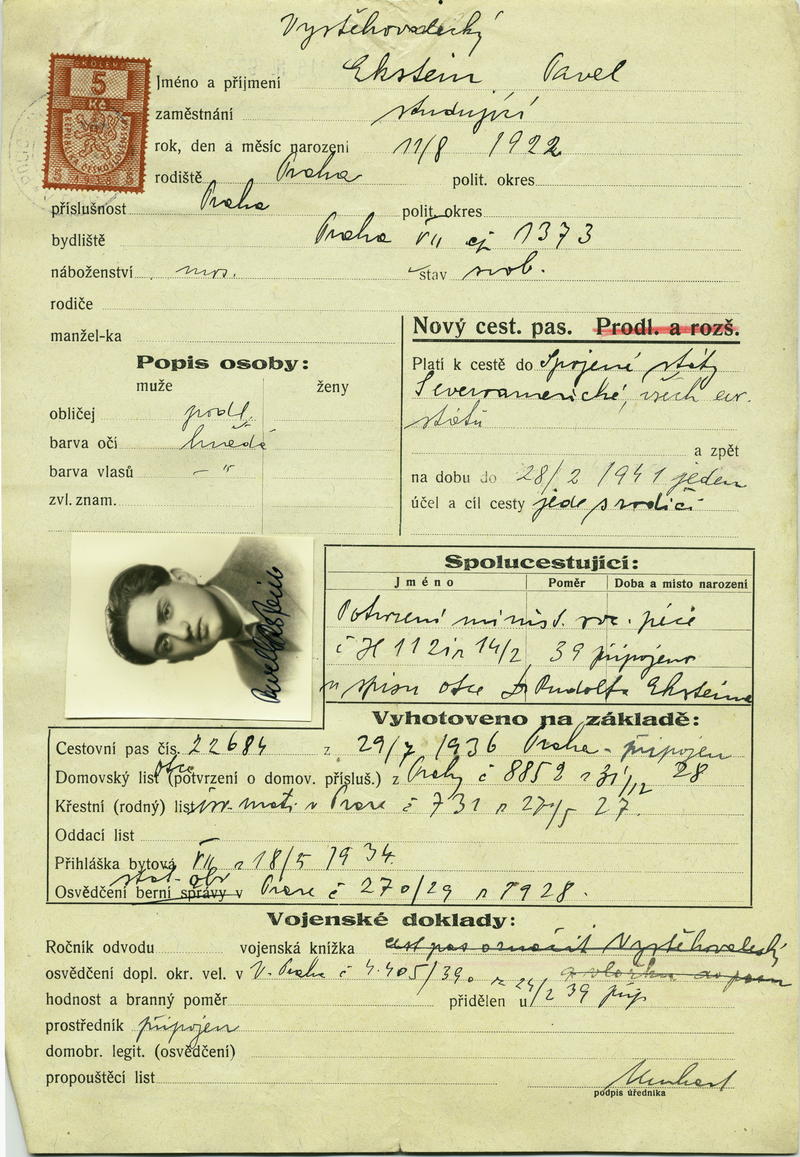 Vystěhovalecký
Jméno a příjmení Ekstein Pavel
zaměstnání studující
rok, den a měsíc narození 11/8 1922
rodiště Praha polit. okres
příslušnost Praha polit. okres
bydliště Praha VII čj 1373
náboženství mos. stav svob.
rodiče
manžel-ka
Popis osoby:
muže ženy
obličej podl.
barva očí hnědá
barva vlasů – " –
zvl. znam.
Nový cest. pas. Prodl. a rozš.
Platí k cestě do Spojené státy
Severoamerické, všech evr.
států
a zpět
na dobu do 28/2 1941 jeden
účel a cíl cesty jede s rodiči
5
Kč
REPUBLIKA ČESKOSLOVENSKÁ
5 5
Pavel Ekstein
Spolucestující:
Jméno Poměr Doba a místo narození
Potvrzení minist. soc. péče
č H 112 14/2 39 připojeno
u spisu otce Dr Rudolfa Eksteina
Vyhotoveno na základě:
Cestovní pas čís. 22684 z 29/7 1936 Praha - připojen
otce
Domovský list (potvrzení o domov. přísluš.) z Prahy č 8852 z 31/12 28
Křestní (rodný) list isr. mat. v Praze č 731 z 27/5 27.
Oddací list
Přihláška bytová VII z 18/5 1934.
stát. obč
Osvědčení berní správy v Praze č 270/29 z 1928.
Vojenské doklady:
Ročník odvodu vojenská knížka cest pas označit Vystěhovalecký
osvědčení dopl. okr. vel. v V. Praha č 4.405/39 z 24/2 39 přip
hodnost a branný poměr přidělen u
prostředník připojen
domobr. legit. (osvědčení)
propouštěcí list
podpis úředníka